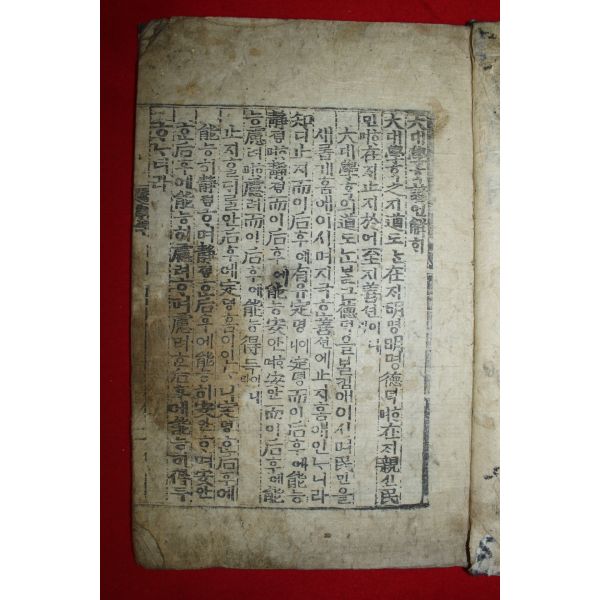 大대學ᄒᆞᆨ諺언解ᄒᆡ
大대學ᄒᆞᆨ之지道도ᄂᆞᆫ在ᄌᆡ明명明명德덕ᄒᆞ며在ᄌᆡ親신民
민ᄒᆞ며在ᄌᆡ止지於어至지善션이니라
大대學ᄒᆞᆨ의道도ᄂᆞᆫᄇᆞᆯᄀᆞᆫ德덕을ᄇᆞᆯ킴애이시며民민을
새롭게홈애이시며지극ᄒᆞᆫ善션에止지홈애인ᄂᆞ니라
知디止지而이后후에有유定뎡이니定뎡而이后후에能능
靜졍ᄒᆞ며靜졍而이后후에能능安안ᄒᆞ며安안而이后후에能
능慮려ᄒᆞ며慮려而이后후에能능得득이니라
止지홀ᄃᆡ를안后후에定뎡홈이인ᄂᆞ니定뎡ᄒᆞᆫ后후에
能능히靜졍ᄒᆞ며靜졍ᄒᆞᆫ后후에能능히安안ᄒᆞ며安안
ᄒᆞᆫ后후에能능히慮려ᄒᆞ며慮려ᄒᆞᆫ后후에能능히得득
ᄒᆞᄂᆞ니라